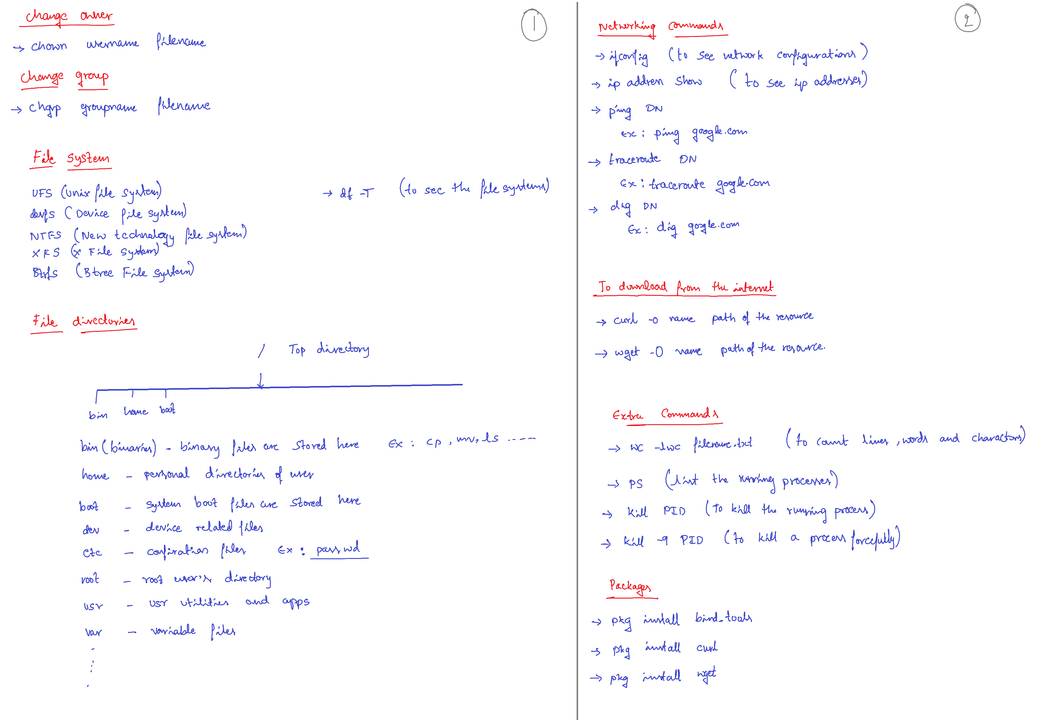 Change owner
1
→ chown username filename
Change group
→ chgrp groupname filename
File system
UFS (Unix file system)
→ df -T (to see the file systems)
devfs (Device file system)
NTFS (New technology file system)
XFS (X File system)
Btrfs (Btree File system)
File directories
/ Top directory
bin home boot
bin (binaries) - binary files are stored here Ex: cp, mv, ls -----
home - personal directories of user
boot - system boot files are stored here
dev - device related files
etc - confiration files Ex: passwd
root - root user's directory
usr - usr utilities and apps
var - variable files
2
Networking Commands
→ ifconfig (to see network configurations)
→ ip address show (to see ip addresses)
→ ping DN
Ex: ping google.com
→ traceroute DN
Ex: traceroute google.com
→ dig DN
Ex: dig google.com
To download from the internet
→ curl -o name path of the resource
→ wget -O name path of the resource.
Extra Commands
→ wc -lwc filename.txt (to count lines, words and charactors)
→ PS (list the running processes)
→ kill PID (To kill the running process)
→ kill -9 PID (to kill a process forcefully)
Packages
→ pkg install bind-tools
→ pkg install curl
→ pkg install wget